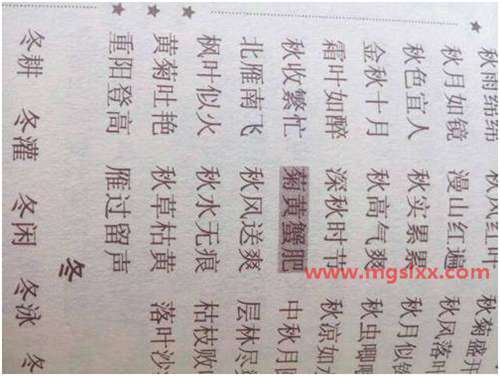 秋雨绵绵 秋风红叶 秋菊盛开
秋月如镜 漫山红遍 秋风落叶
秋色宜人 秋实累累 秋月似
金秋十月 秋高气爽 秋虫唧唧
霜叶如醉 深秋时节 秋凉如
秋收繁忙 菊黄蟹肥 中秋月
北雁南飞 秋风送爽 层林尽
枫叶似火 秋水无痕 枯枝败
黄菊吐艳 秋草枯黄 落叶沙
重阳登高 雁过留声
冬
冬耕 冬灌 冬闲 冬泳 冬
www.mgslxx.com